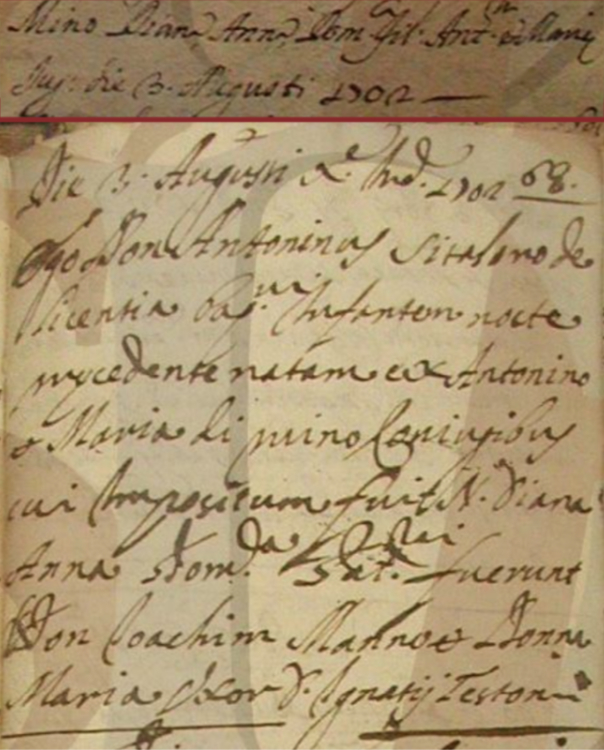 Mino Diana Anna Dom.ca fil. Ant.ni et Marie
Iug. die 3. Augusti 1702
Die 3. Augusti X.e Ind. 1702 68.
Ego Don Antoninus de
licentia bap.vi Infantem nocte
precedente natam ex Antonino
et Maria di mino Coniugibus
cui Impositum fuit N. Diana
Anna Dom.da P.rini fuerunt
Don Ioachim Manno et Donna
Maria Uxor D. Ignatij Teston